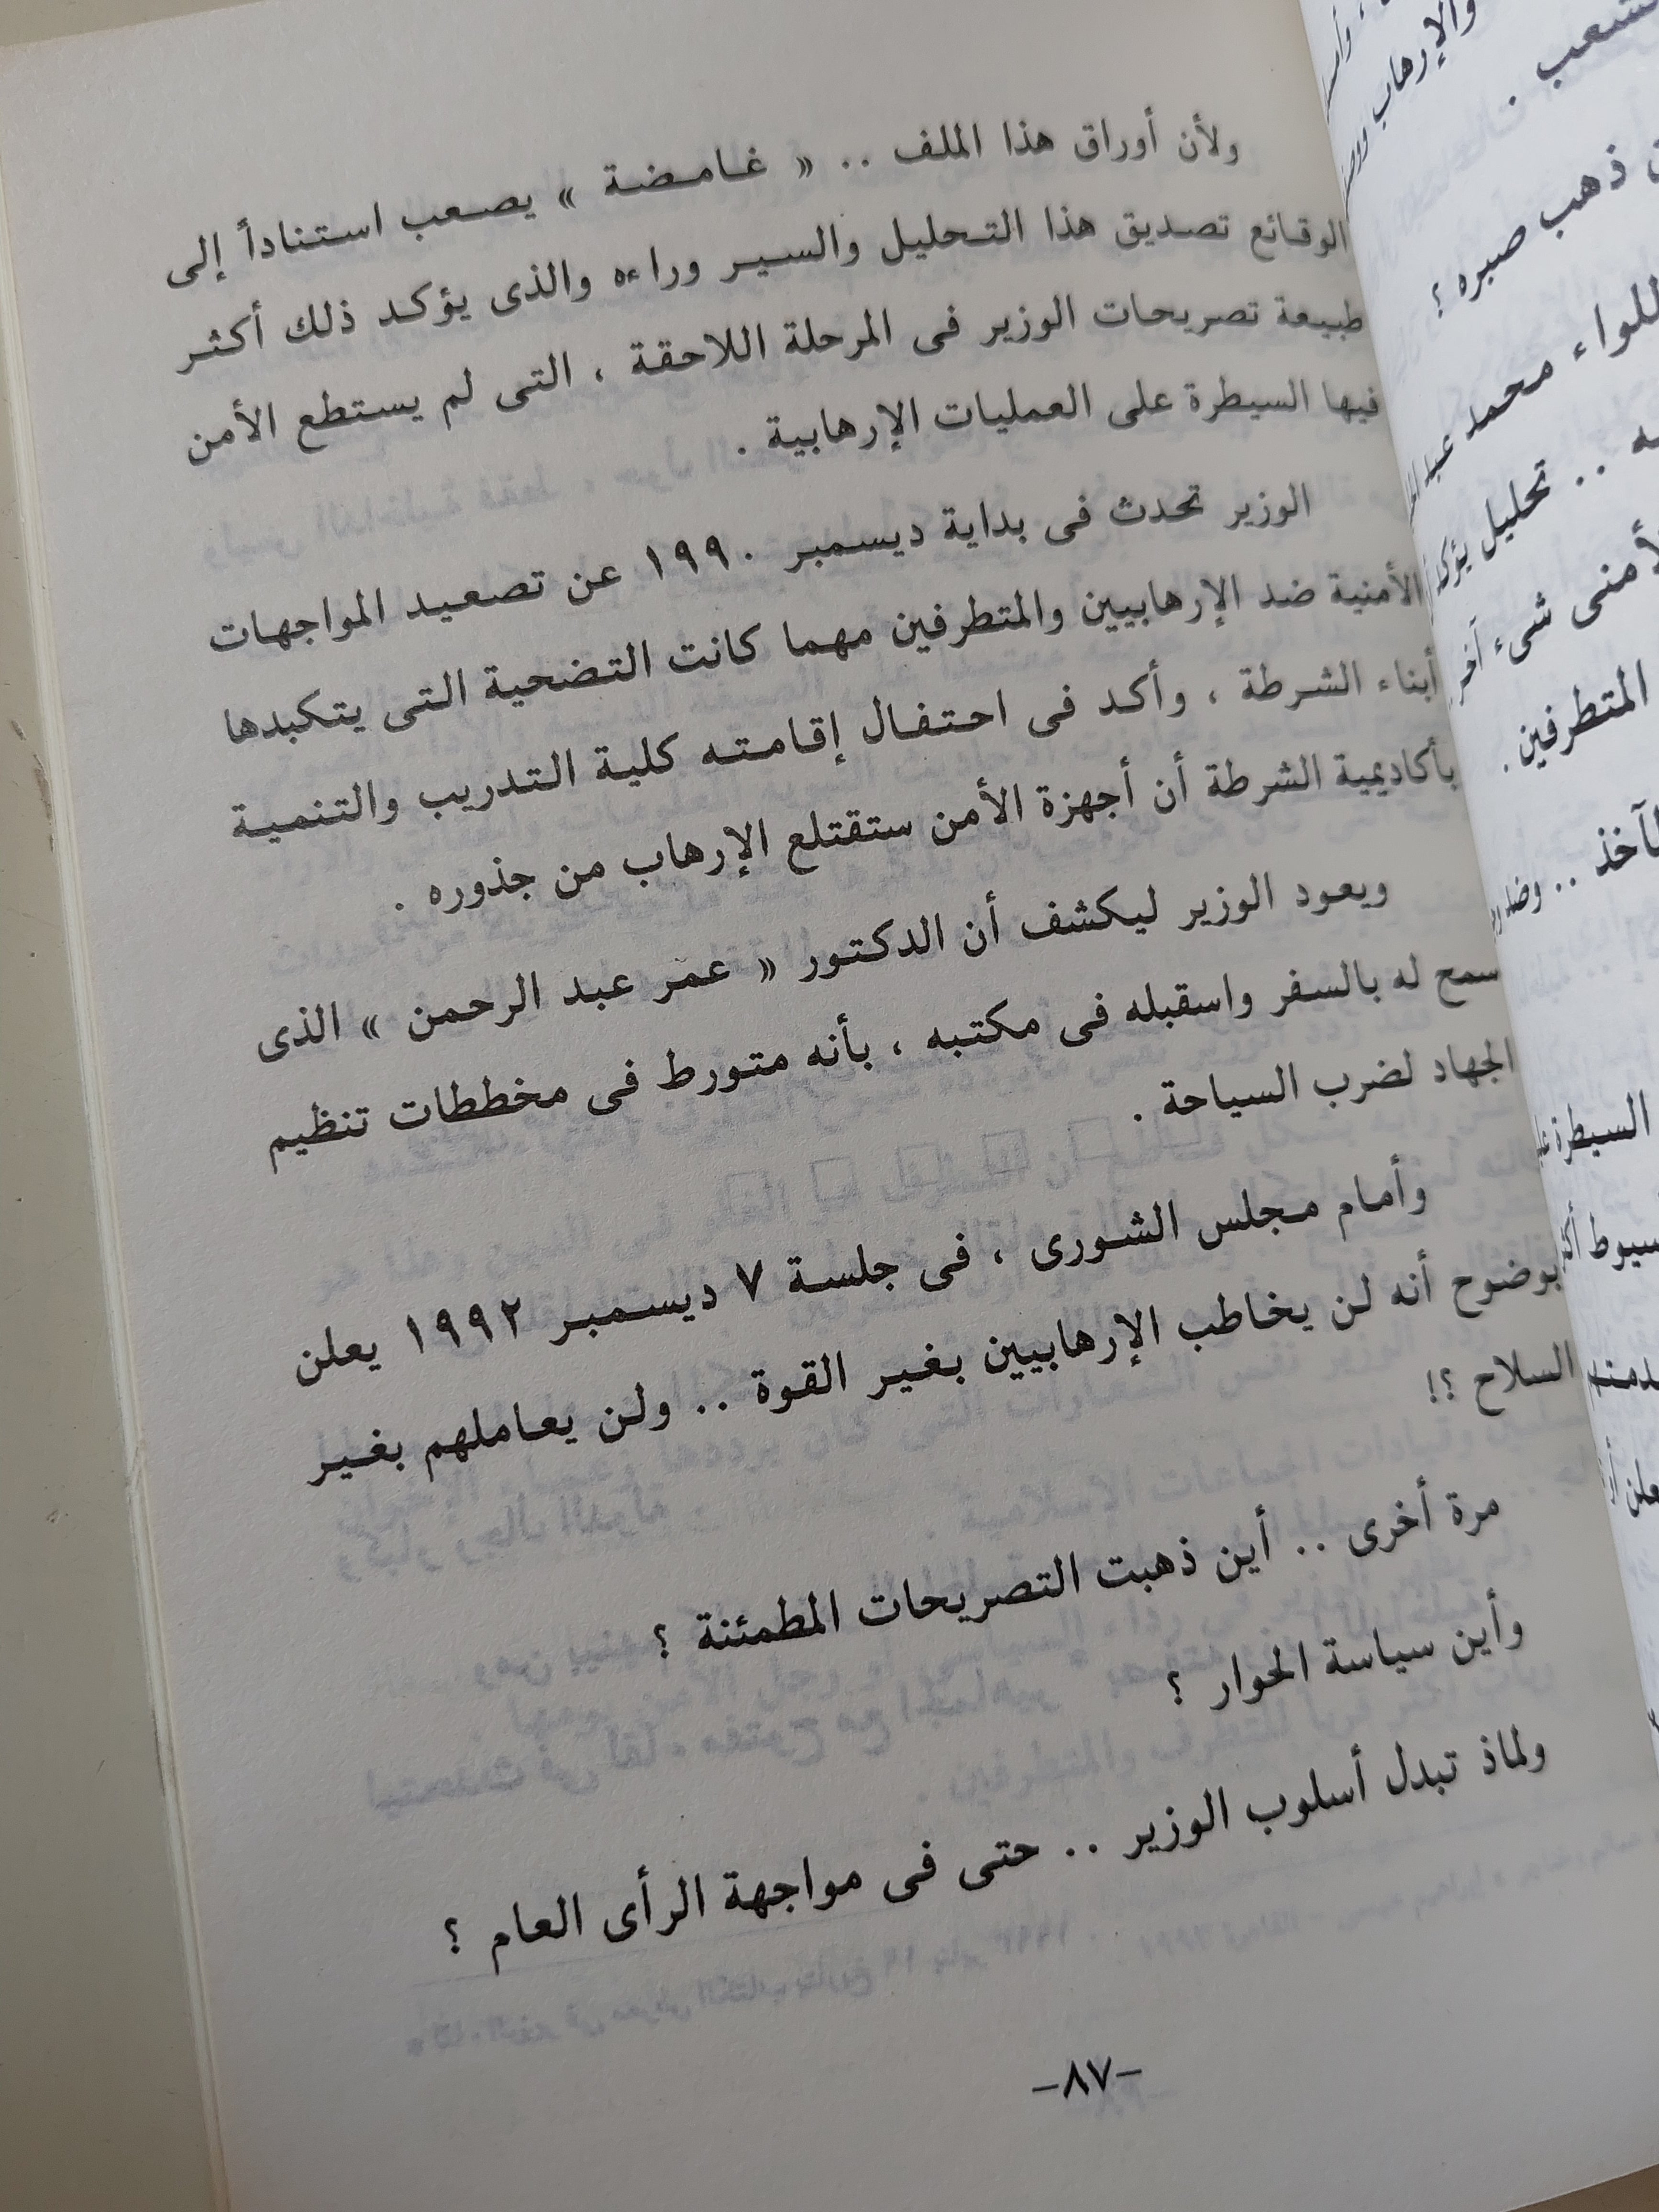 ولأن أوراق هذا الملف .. « غامضة » يصعب استناداً إلى
الوقائع تصديق هذا التحليل والسير وراءه والذى يؤكد ذلك أكثر
طبيعة تصريحات الوزير فى المرحلة اللاحقة ، التى لم يستطع الأمن
فيها السيطرة على العمليات الإرهابية .
الوزير تحدث فى بداية ديسمبر ١٩٩٠ عن تصعيد المواجهات
الأمنية ضد الإرهابيين والمتطرفين مهما كانت التضحية التى يتكبدها
أبناء الشرطة ، وأكد فى احتفال إقامته كلية التدريب والتنمية
بأكاديمية الشرطة أن أجهزة الأمن ستقتلع الإرهاب من جذوره .
ويعود الوزير ليكشف أن الدكتور « عمر عبد الرحمن » الذى
سمح له بالسفر واسقبله فى مكتبه ، بأنه متورط فى مخططات تنظيم
الجهاد لضرب السياحة .
وأمام مجلس الشورى ، فى جلسة ٧ ديسمبر ١٩٩٢ يعلن
بوضوح أنه لن يخاطب الإرهابيين بغير القوة .. ولن يعاملهم بغير
السلاح ؟!
مرة أخرى .. أين ذهبت التصريحات المطمئنة ؟
وأين سياسة الحوار ؟
ولماذ تبدل أسلوب الوزير .. حتى فى مواجهة الرأى العام ؟
–٨٧–
والإرهاب
ذهب صبره ؟
للواء محمد
.. تحليل
شىء آخر
المتطرفين .
السيطرة